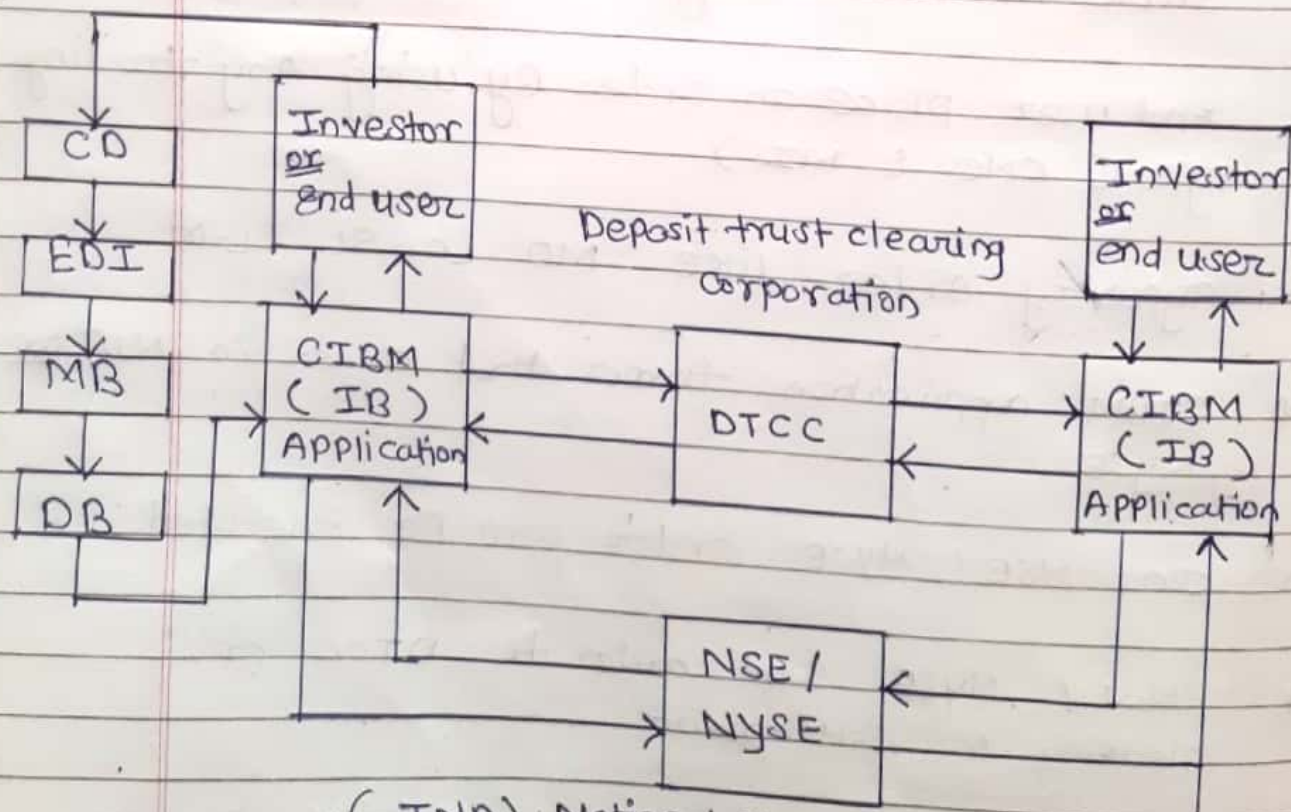 CD
EDI
MB
DB
Investor
or
end user
CIBM
(IB)
Application
Deposit trust clearing
corporation
DTCC
NSE/
NYSE
Investor
or
end user
CIBM
(IB)
Application